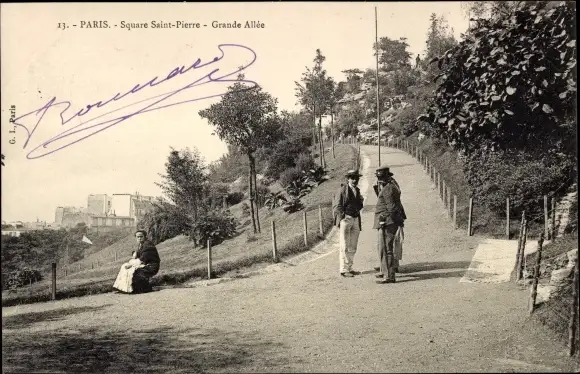 13. - PARIS. - Square Saint-Pierre - Grande Allée
G. I., Paris